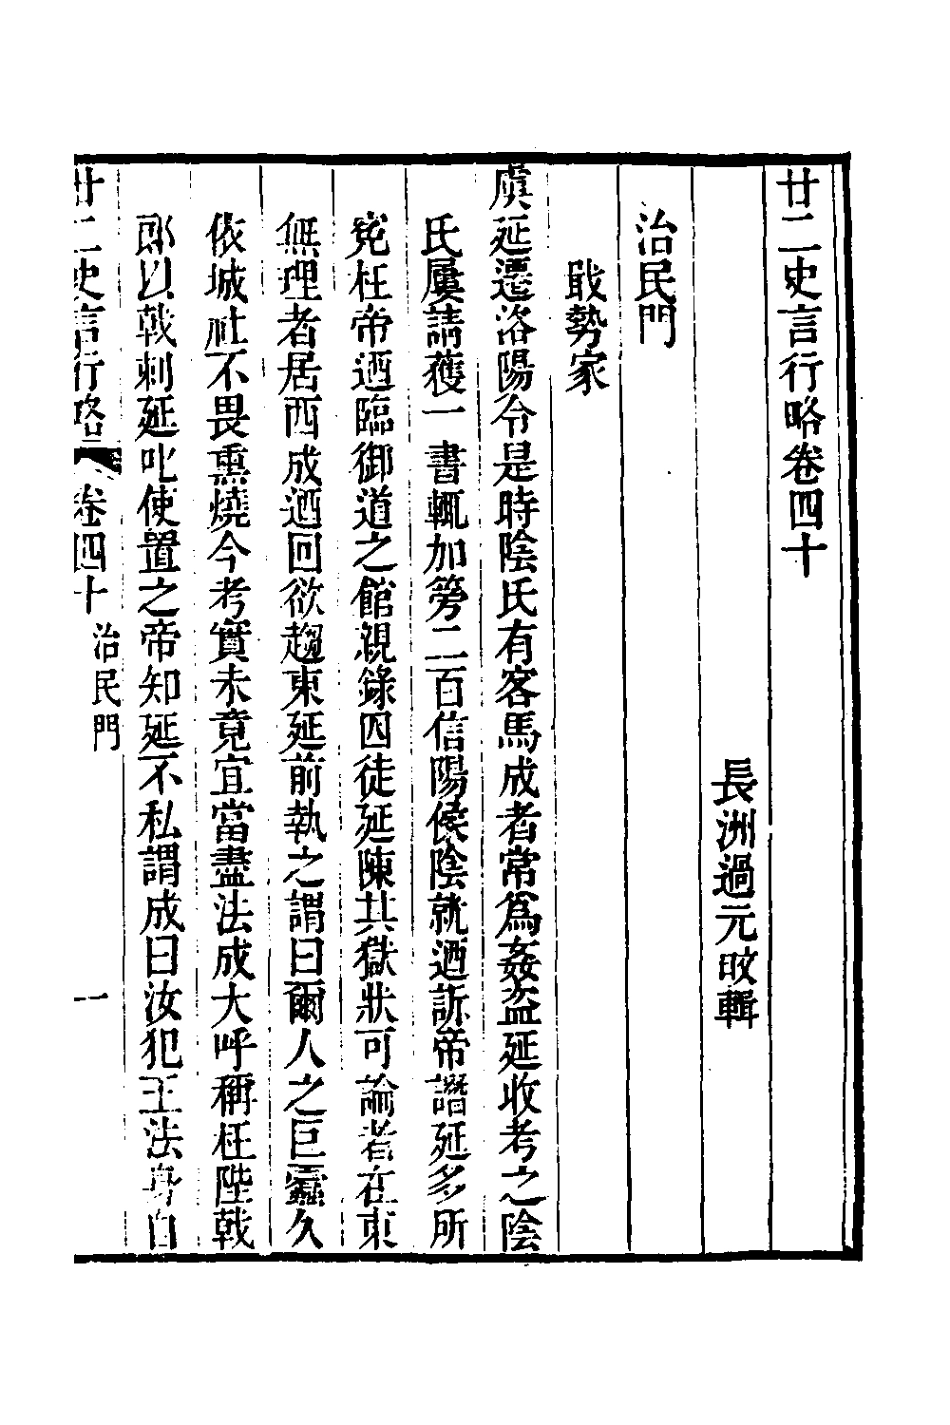 廿二史言行略卷四十
長洲過元旼輯
治民門
戢勢家
虞延遷洛陽令是時陰氏有客馬成者常爲姦盜延收考之陰
氏屢請獲一書輒加篣二百信陽侯陰就迺訴帝譖延多所
寃枉帝迺臨御道之館親錄囚徒延陳其獄狀可論者在東
無理者居西成迺回欲趨東延前執之謂曰爾人之巨蠹久
依城社不畏熏燒今考實未竟宜當盡法成大呼稱枉陛戟
郎以戟刺延叱使置之帝知延不私謂成曰汝犯王法身自
廿二史言行略 卷四十 治民門 一